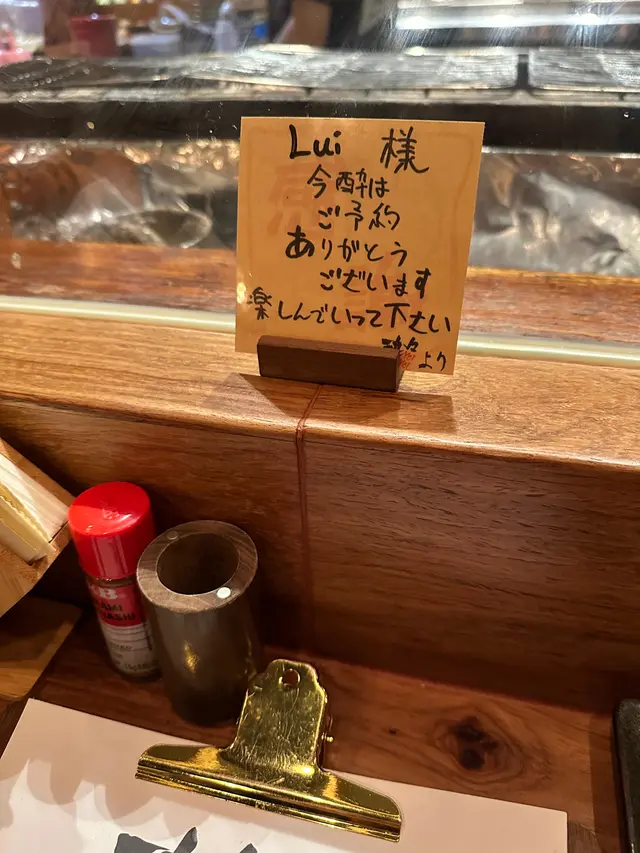 Lui 様
今酔は
ご予約
ありがとう
ございます
楽しんでいって下さい
より